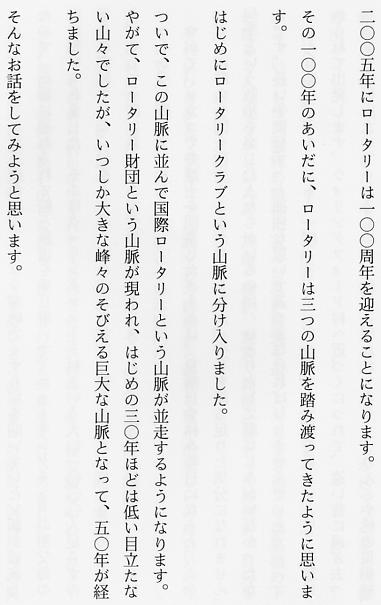 二〇〇五年にロータリーは一〇〇周年を迎えることになります。
その一〇〇年のあいだに、ロータリーは三つの山脈を踏み渡ってきたように思いま
す。
はじめにロータリークラブという山脈に分け入りました。
ついで、この山脈に並んで国際ロータリーという山脈が並走するようになります。
やがて、ロータリー財団という山脈が現われ、はじめの三〇年ほどは低い目立たな
い山々でしたが、いつしか大きな峰々のそびえる巨大な山脈となって、五〇年が経
ちました。
そんなお話をしてみようと思います。